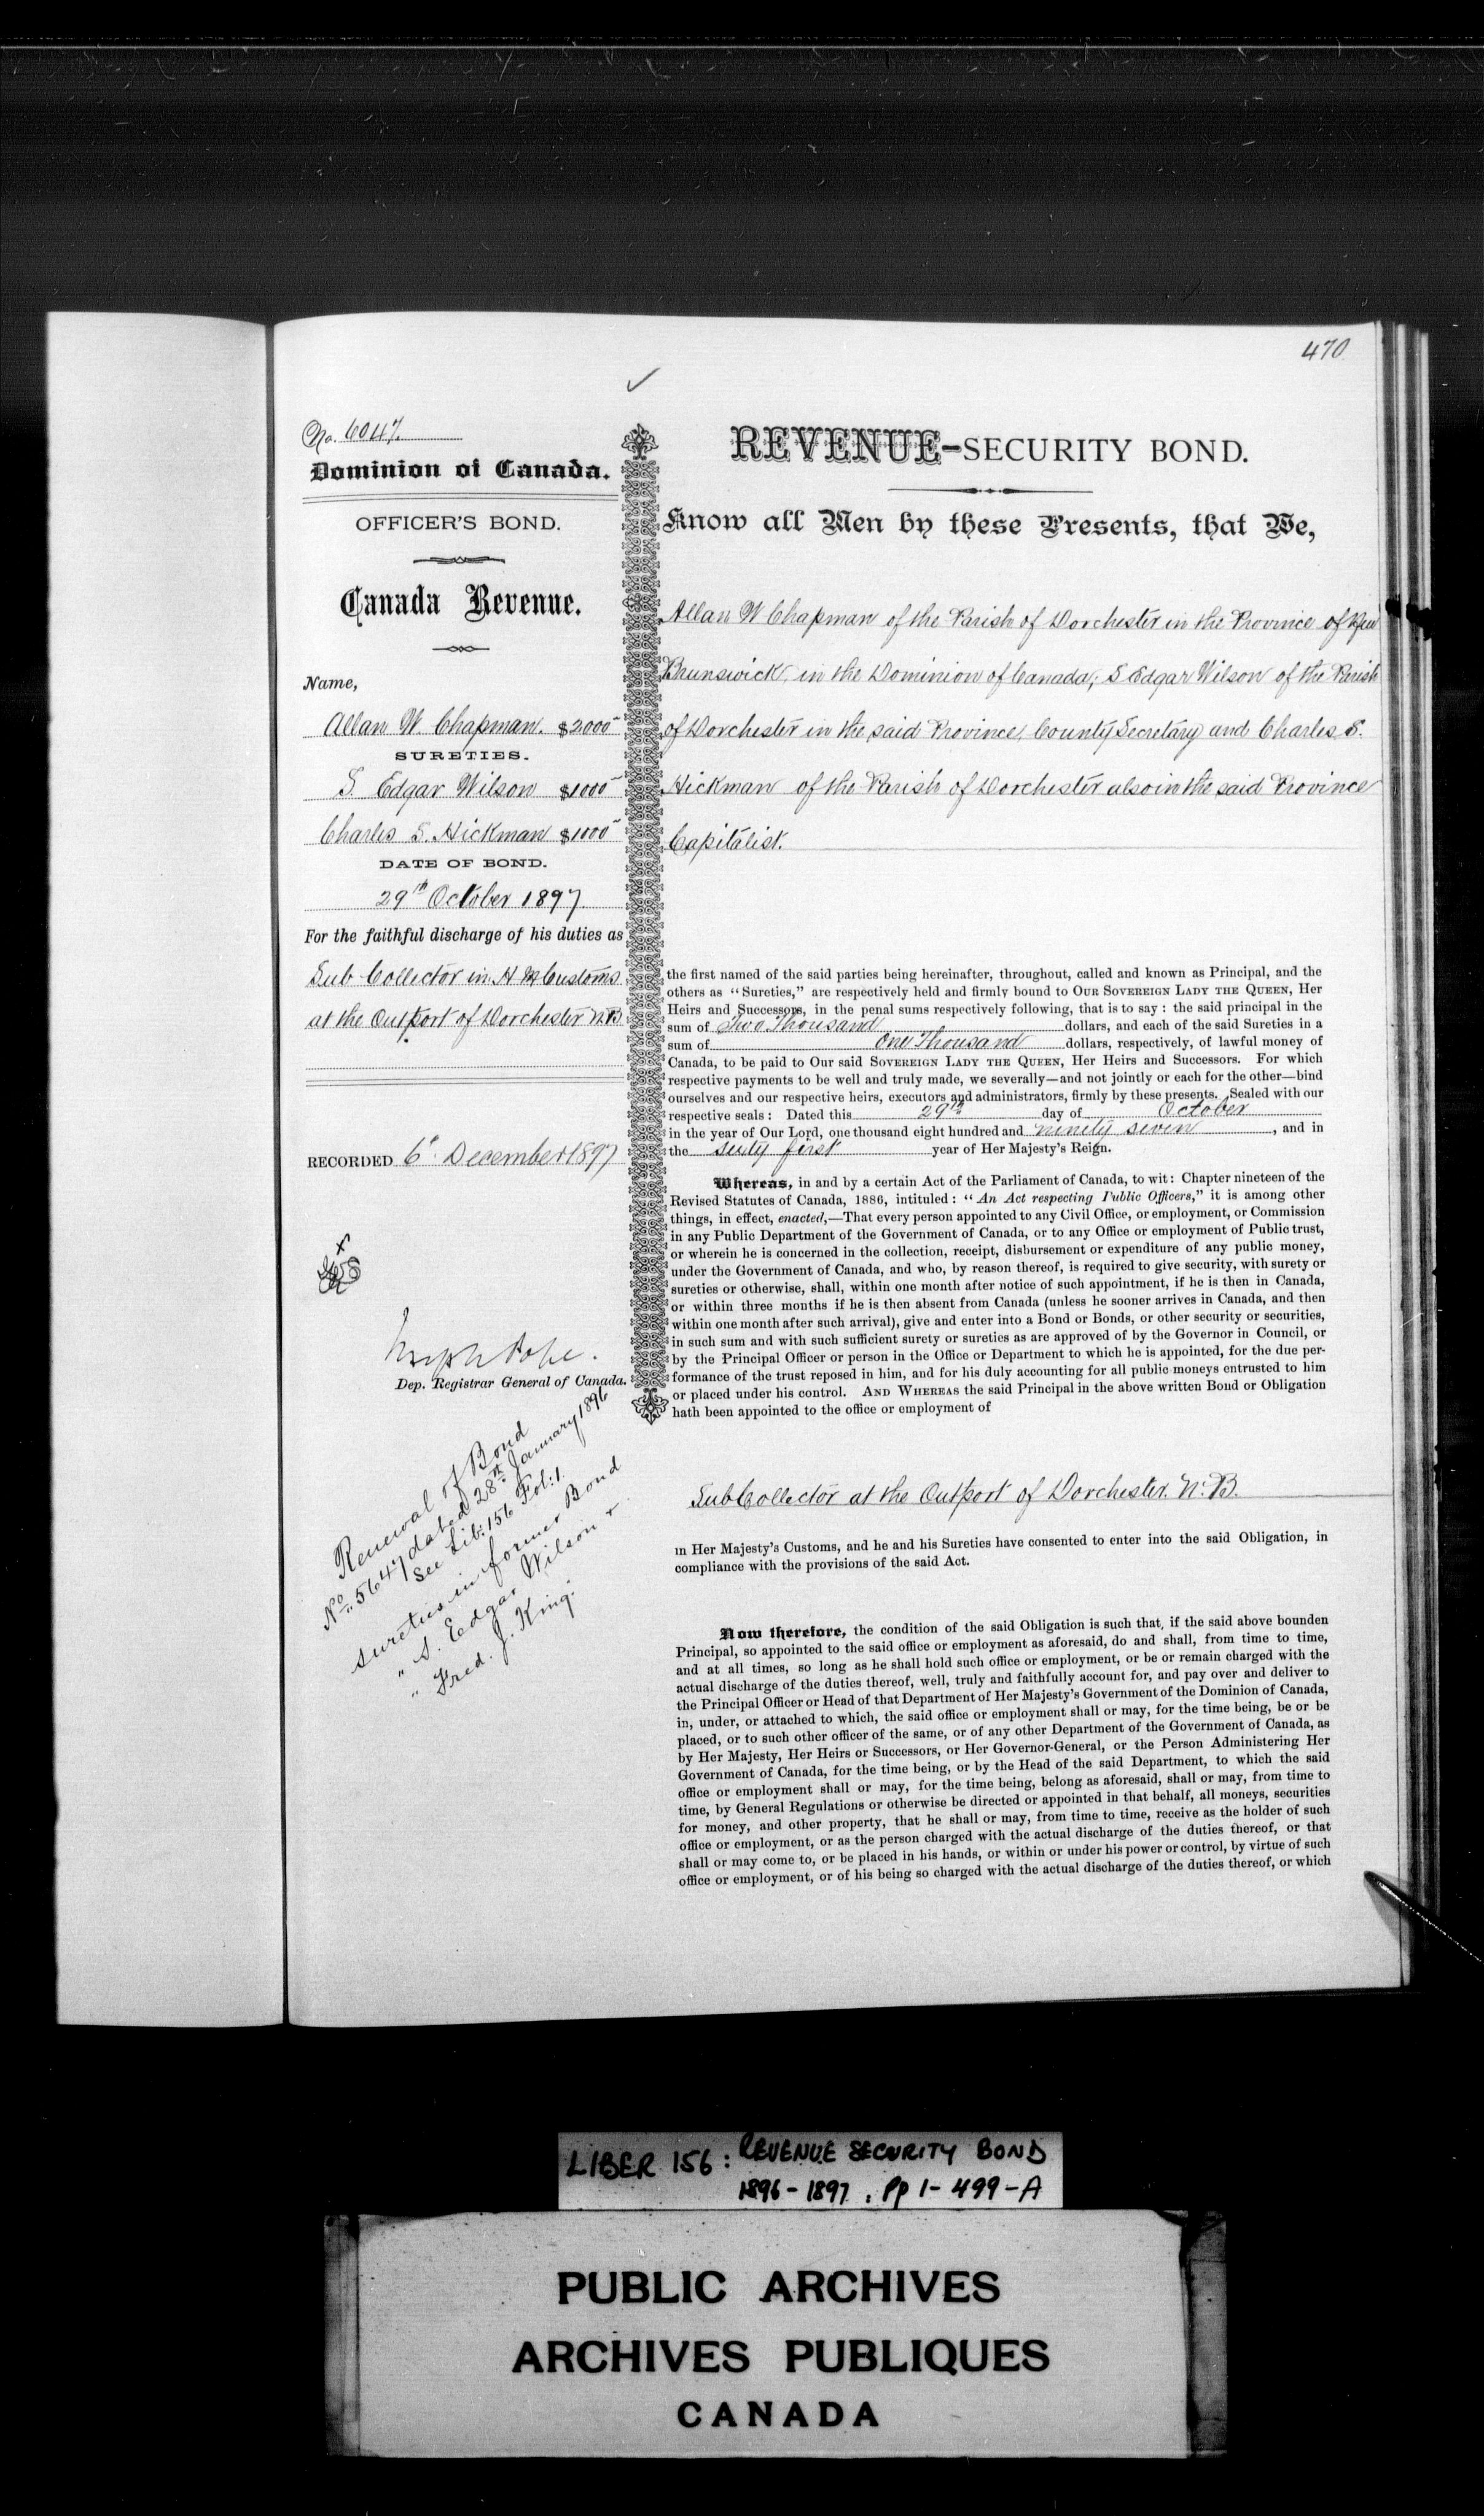 470
No. 6047
Dominion of Canada.
OFFICER'S BOND.
Canada Revenue.
Name,
Allan W. Chapman. $2000
SURETIES.
S. Edgar Wilson $1000
Charles S. Hickman $1000
DATE OF BOND.
29th October 1897
For the faithful discharge of his duties as
Sub-Collector in H M Customs
at the Outport of Dorchester N.B.
RECORDED 6th December 1897
Joseph Pope.
Dep. Registrar General of Canada.
Renewal of Bond
No. 5647 dated 28th January 1896
See Lib: 156 Fol: 1.
sureties in former Bond
" S. Edgar Wilson &
" Fred. J. King.
REVENUE-SECURITY BOND.
Know all Men by these Presents, that We,
Allan W Chapman of the Parish of Dorchester in the Province of New
Brunswick, in the Dominion of Canada; S Edgar Wilson of the Parish
of Dorchester in the said Province, County Secretary and Charles S.
Hickman of the Parish of Dorchester also in the said Province
Capitalist.
the first named of the said parties being hereinafter, throughout, called and known as Principal, and the
others as "Sureties," are respectively held and firmly bound to OUR SOVEREIGN LADY THE QUEEN, Her
Heirs and Successors, in the penal sums respectively following, that is to say: the said principal in the
sum of Two Thousand dollars, and each of the said Sureties in a
sum of One Thousand dollars, respectively, of lawful money of
Canada, to be paid to Our said SOVEREIGN LADY THE QUEEN, Her Heirs and Successors. For which
respective payments to be well and truly made, we severally—and not jointly or each for the other—bind
ourselves and our respective heirs, executors and administrators, firmly by these presents. Sealed with our
respective seals: Dated this 29th day of October
in the year of Our Lord, one thousand eight hundred and ninety seven, and in
the sixty first year of Her Majesty's Reign.
Whereas, in and by a certain Act of the Parliament of Canada, to wit: Chapter nineteen of the
Revised Statutes of Canada, 1886, intituled: "An Act respecting Public Officers," it is among other
things, in effect, enacted,—That every person appointed to any Civil Office, or employment, or Commission
in any Public Department of the Government of Canada, or to any Office or employment of Public trust,
or wherein he is concerned in the collection, receipt, disbursement or expenditure of any public money,
under the Government of Canada, and who, by reason thereof, is required to give security, with surety or
sureties or otherwise, shall, within one month after notice of such appointment, if he is then in Canada,
or within three months if he is then absent from Canada (unless he sooner arrives in Canada, and then
within one month after such arrival), give and enter into a Bond or Bonds, or other security or securities,
in such sum and with such sufficient surety or sureties as are approved of by the Governor in Council, or
by the Principal Officer or person in the Office or Department to which he is appointed, for the due per-
formance of the trust reposed in him, and for his duly accounting for all public moneys entrusted to him
or placed under his control. AND WHEREAS the said Principal in the above written Bond or Obligation
hath been appointed to the office or employment of
Sub Collector at the Outport of Dorchester. N.B.
in Her Majesty's Customs, and he and his Sureties have consented to enter into the said Obligation, in
compliance with the provisions of the said Act.
Now therefore, the condition of the said Obligation is such that, if the said above bounden
Principal, so appointed to the said office or employment as aforesaid, do and shall, from time to time,
and at all times, so long as he shall hold such office or employment, or be or remain charged with the
actual discharge of the duties thereof, well, truly and faithfully account for, and pay over and deliver to
the Principal Officer or Head of that Department of Her Majesty's Government of the Dominion of Canada,
in, under, or attached to which, the said office or employment shall or may, for the time being, be or be
placed, or to such other officer of the same, or of any other Department of the Government of Canada, as
by Her Majesty, Her Heirs or Successors, or Her Governor-General, or the Person Administering Her
Government of Canada, for the time being, or by the Head of the said Department, to which the said
office or employment shall or may, for the time being, belong as aforesaid, shall or may, from time to
time, by General Regulations or otherwise be directed or appointed in that behalf, all moneys, securities
for money, and other property, that he shall or may, from time to time, receive as the holder of such
office or employment, or as the person charged with the actual discharge of the duties thereof, or that
shall or may come to, or be placed in his hands, or within or under his power or control, by virtue of such
office or employment, or of his being so charged with the actual discharge of the duties thereof, or which
LIBER 156: REVENUE SECURITY BOND
1896-1897. Pp 1-499-A
PUBLIC ARCHIVES
ARCHIVES PUBLIQUES
CANADA